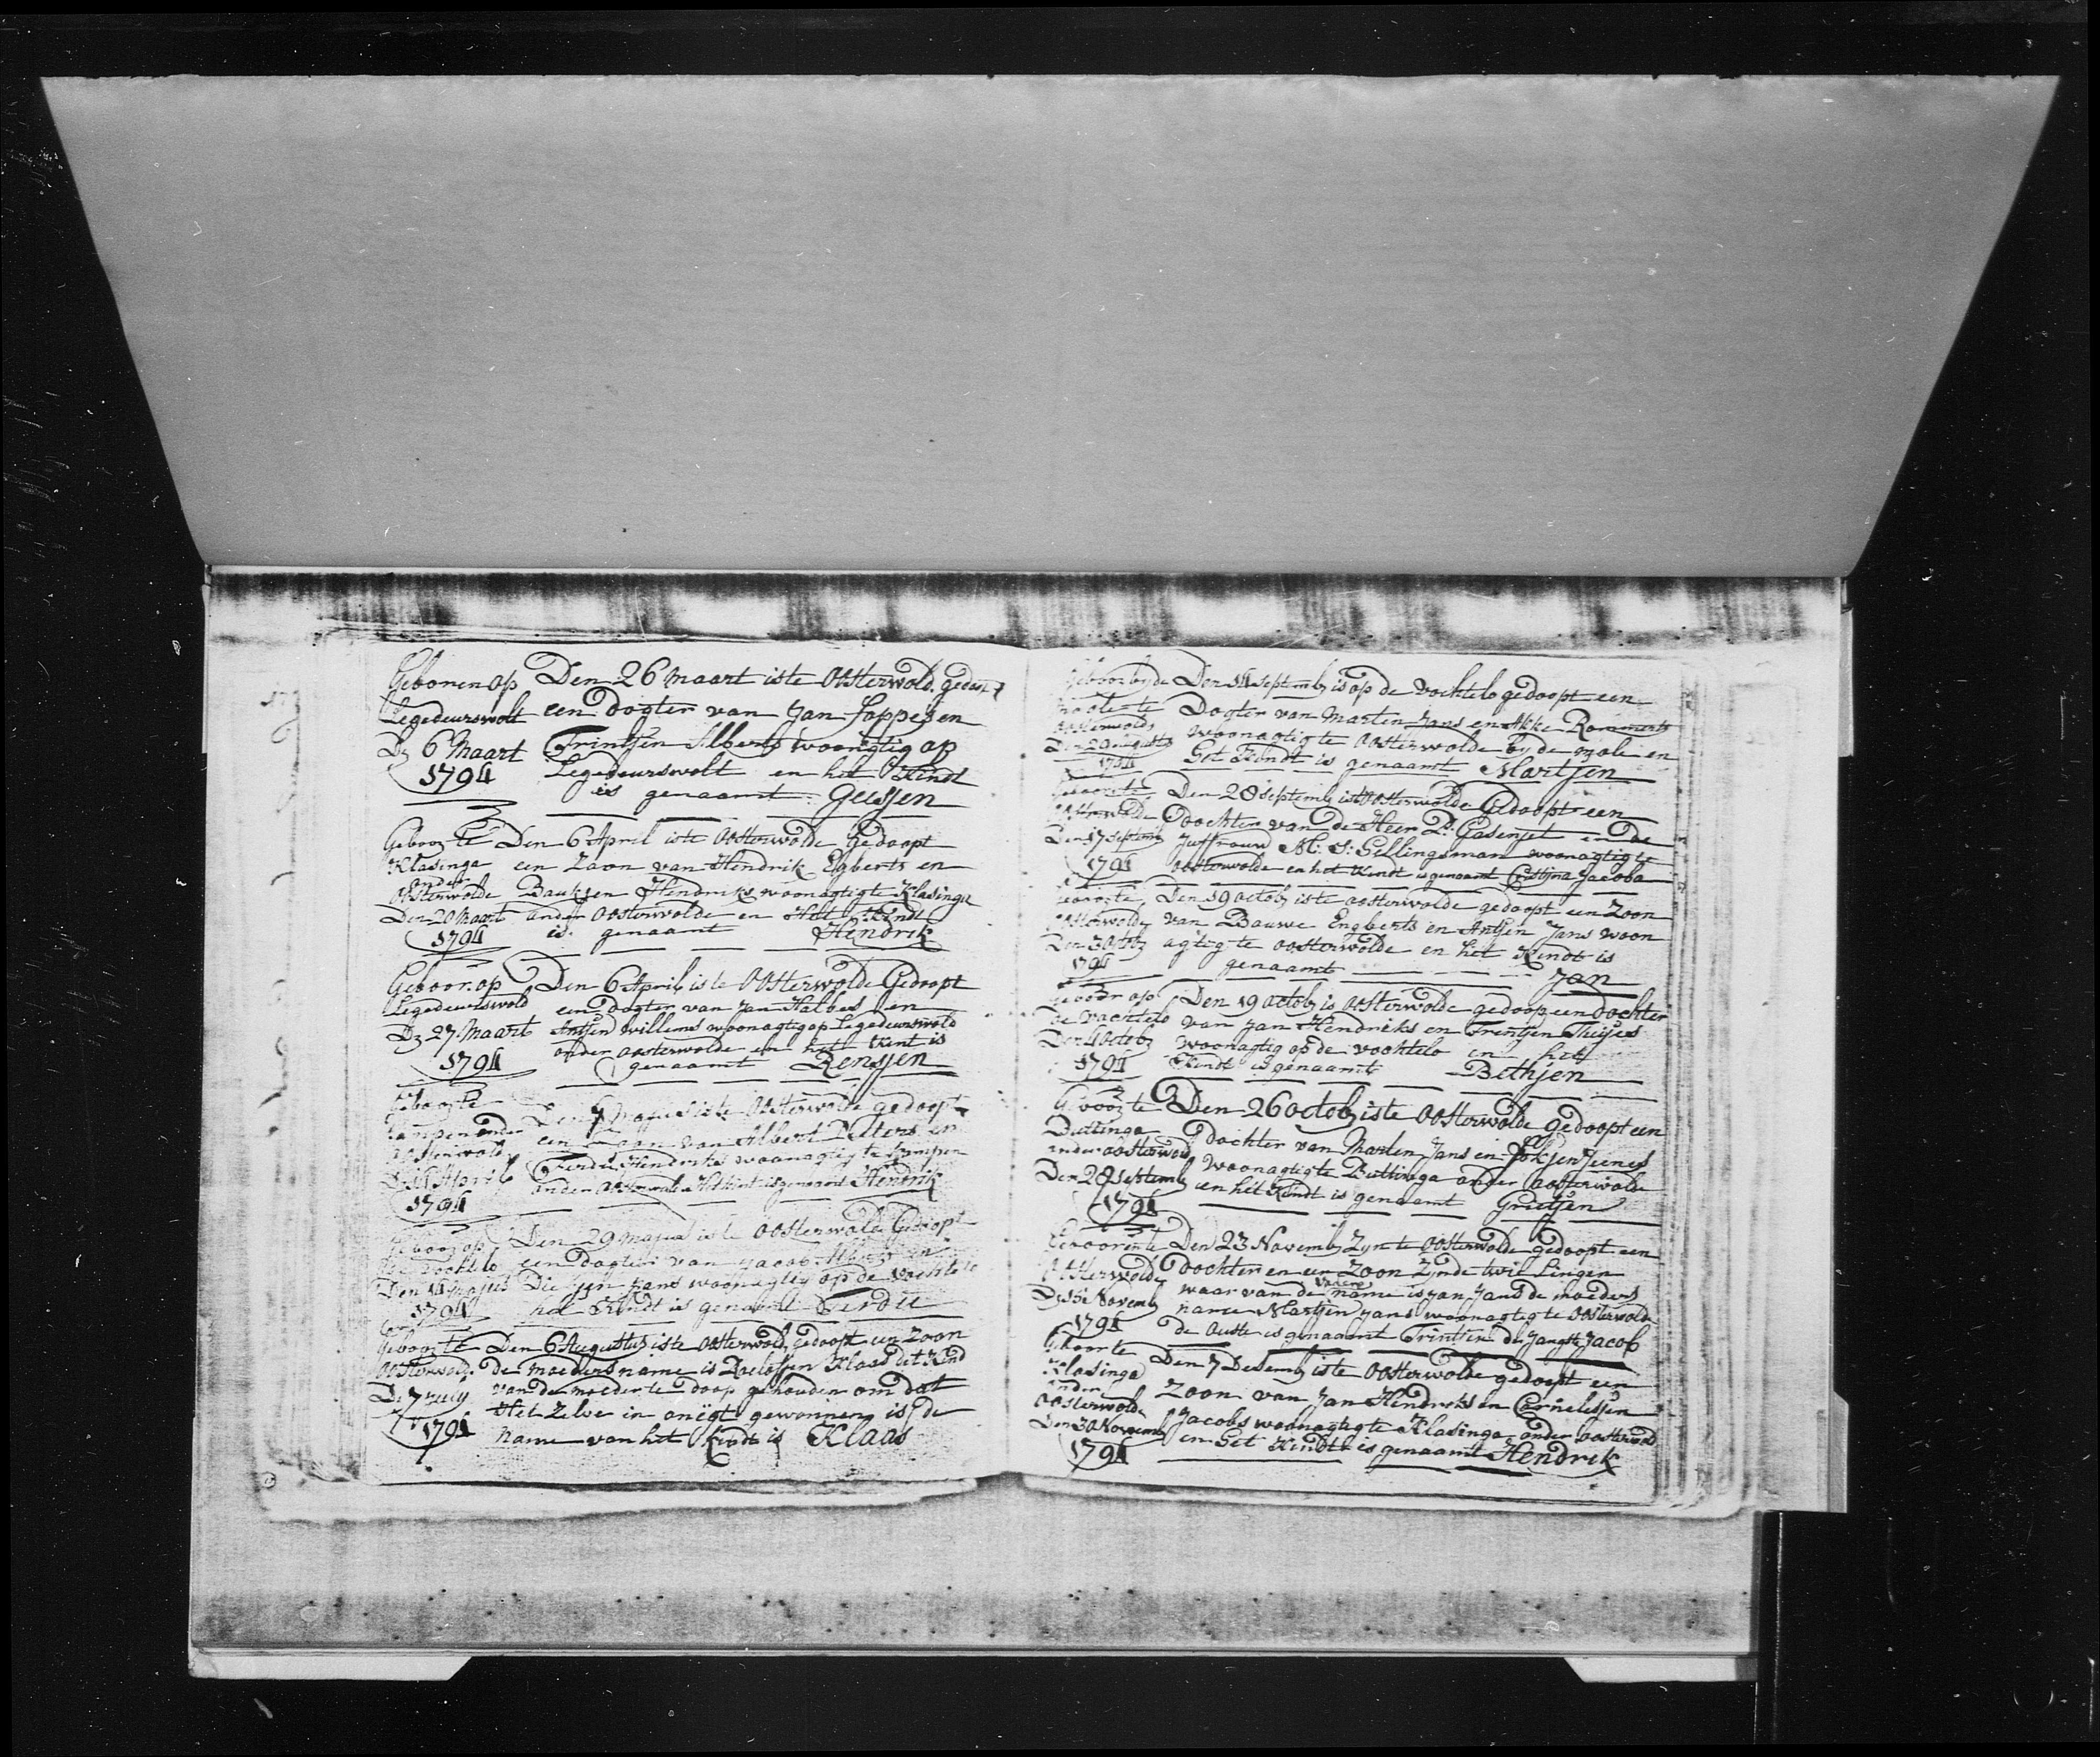 Gebooren op
Legedeurswolt
Dz 6 Maart
1794
Den 26 maart is te Oosterwold. gedoopt
een dogter van Jan Joppes en
Trintjen Alberts woonagtig op
Legedeurswolt en het Kindt
is genaamt Geesjen
Gebooz te
Klasinga
onder
Oosterwolde
Den 20 Maart
1794
Den 6 April is te Oosterwolde Gedoopt
een Zoon van Hendrik Egberts en
Baukjen Hendriks woonagtig te Klasinga
onder Oosterwolde en Het Kindt
is genaamt Hendrik
Geboor. op
Legedeurswold
Dz 27 Maart
1794
Den 6 April is te Oosterwolde Gedoopt
een dogter van Jan Halbes en
Antjen Willems woonagtig op Legedeurswold
onder oosterwolde en het Kint is
genaamt Rensjen
Gebooz te
Kampen onder
Oosterwolde
April
1794
Den Majus is te Oosterwolde gedoopt
een Zoon van Albert Peters en
Hendriks woonagtig te Kampen
onder Oosterwolde Het Kint is genaamt Hendrik
Gebooz op
de vochtelo
Den 14 Majus
1794
Den 29 Majus is te Oosterwolde Gedoopt
een dogter van Jacob Alberts en
Jans woonagtig op de vochtelo
het Kindt is genaamt
Gebooz te
Oosterwolde
Dz 7 July
1794
Den 6 Augustus is te Oosterwolde gedoopt een Zoon
de moeders name is Roelofjen Klaas dit Kind
van de moeder te doop gehouden om dat
Het Zelve in onegt gewonnen is de
name van het Kindt is Klaas
Gebooz by de
mole te
Oosterwolde
Den 20 Augusts
1794
Den 14 Septemb is op de Vochtelo gedoopt een
Dogter van Marten Jans en Akke Rommerts
woonagtig te Oosterwolde by de mole en
Het Kindt is genaamt Martjen
Gebooz te
Oosterwolde
Den 17 Septemb
1794
Den 28 Septemb is te Oosterwolde Gedoopt een
Doochter van de Heer P. Gasenjet en de
Juffrouw M: S: Gellingsman woonagtig te
Oosterwolde en het Kindt is genaamt Cristina Jacoba
Gebooz te
Oosterwolde
Den 3 Octob
1794
Den 19 Octob is te oosterwolde gedoopt een Zoon
van Bauwe Engberts en Antjen Jans woon
agtig te oosterwolde en het Kindt is
genaamt Jan
Geboor op
de vochtelo
Den 4 Octob
1794
Den 19 Octob is Oosterwolde gedoop een dochter
van Jan Hendriks en Trentjen Theijes
woonagtig op de vochtelo en het
Kindt is genaamt Bethjen
Gebooz te
Buttinga
onder oosterwold
Den 28 Septemb
1794
Den 26 Octob is te Oosterwolde Gedoopt een
dochter van Marten Jans en Fokjen Jeenes
Woonagtig te Buttinga onder oosterwolde
en het Kindt is genaamt Grietjen
Gebooren te
Oosterwolde
Novemb
1794
Den 23 Novemb Zyn te Oosterwolde gedoopt een
dochter en een Zoon Zynde twilingen
waar van de vaders name is Jan Jans de moeders
name Martjen Jans woonagtig te Oosterwolde
de Outste is genaamt Trintjen de Jongste Jacob
Geboor te
Klasinga
onder
Oosterwolde
Den 30 Novemb
1794
Den 7 Desemb is te Oosterwolde gedoopt een
Zoon van Jan Hendreks en Cornelisjen
Jacobs woonagtig te Klasinga onder oosterwold
en Het Kindt is genaamt Hendrik